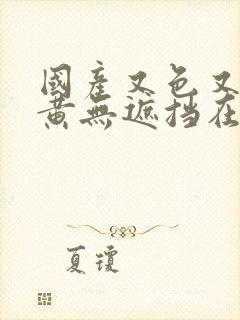 國產又色又
黄無遮挡在
夏瓊